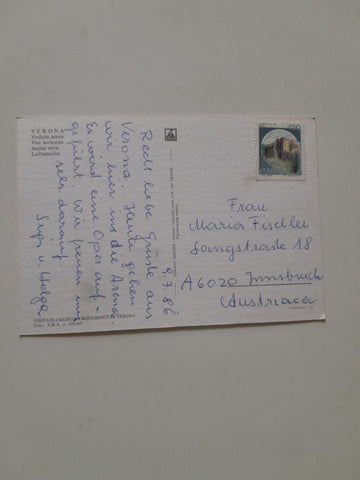 VERONA
Veduta aerea
Vue aérienne
Aerial view
Luftansicht
9.7.86
Recht liebe Grüße aus
Verona. Heute gehen
wir hier in die Arena.
Es wird eine Oper auf-
geführt. Wir freuen uns
sehr darauf.
u. Helga
VISITATE I MUSEI E MONUMENTI DI VERONA
Frau
Maria Fiedler
Langstraße 18
A6020 Innsbruck
Austriaca